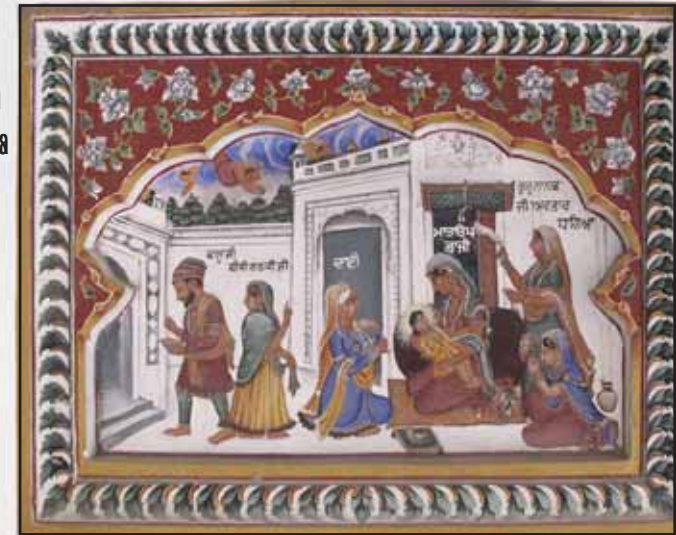 ਕਾਲੂ ਜੀ
ਬੀਬੀ ਨਾਨਕੀ ਜੀ
ਦਾਈ
ਮਾਤਾ ਤ੍ਰਿਪ
ਤਾ ਜੀ
ਗੁਰੂ ਨਾਨਕ
ਜੀ ਅਵਤਾਰ
ਧਾਰਿਆ